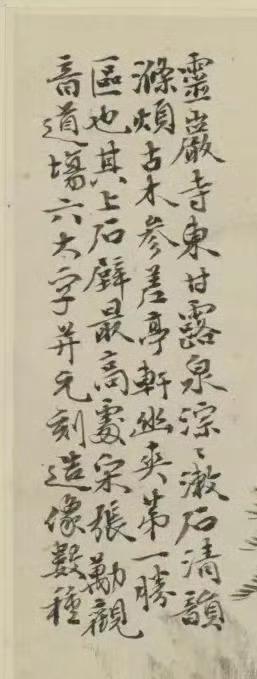 靈巖寺東甘露泉淙〻漱石清韻
滌煩古木參差亭軒幽爽第一勝
區也其上石壁最高處宋張勱觀
音道場六大字并元刻造像數種